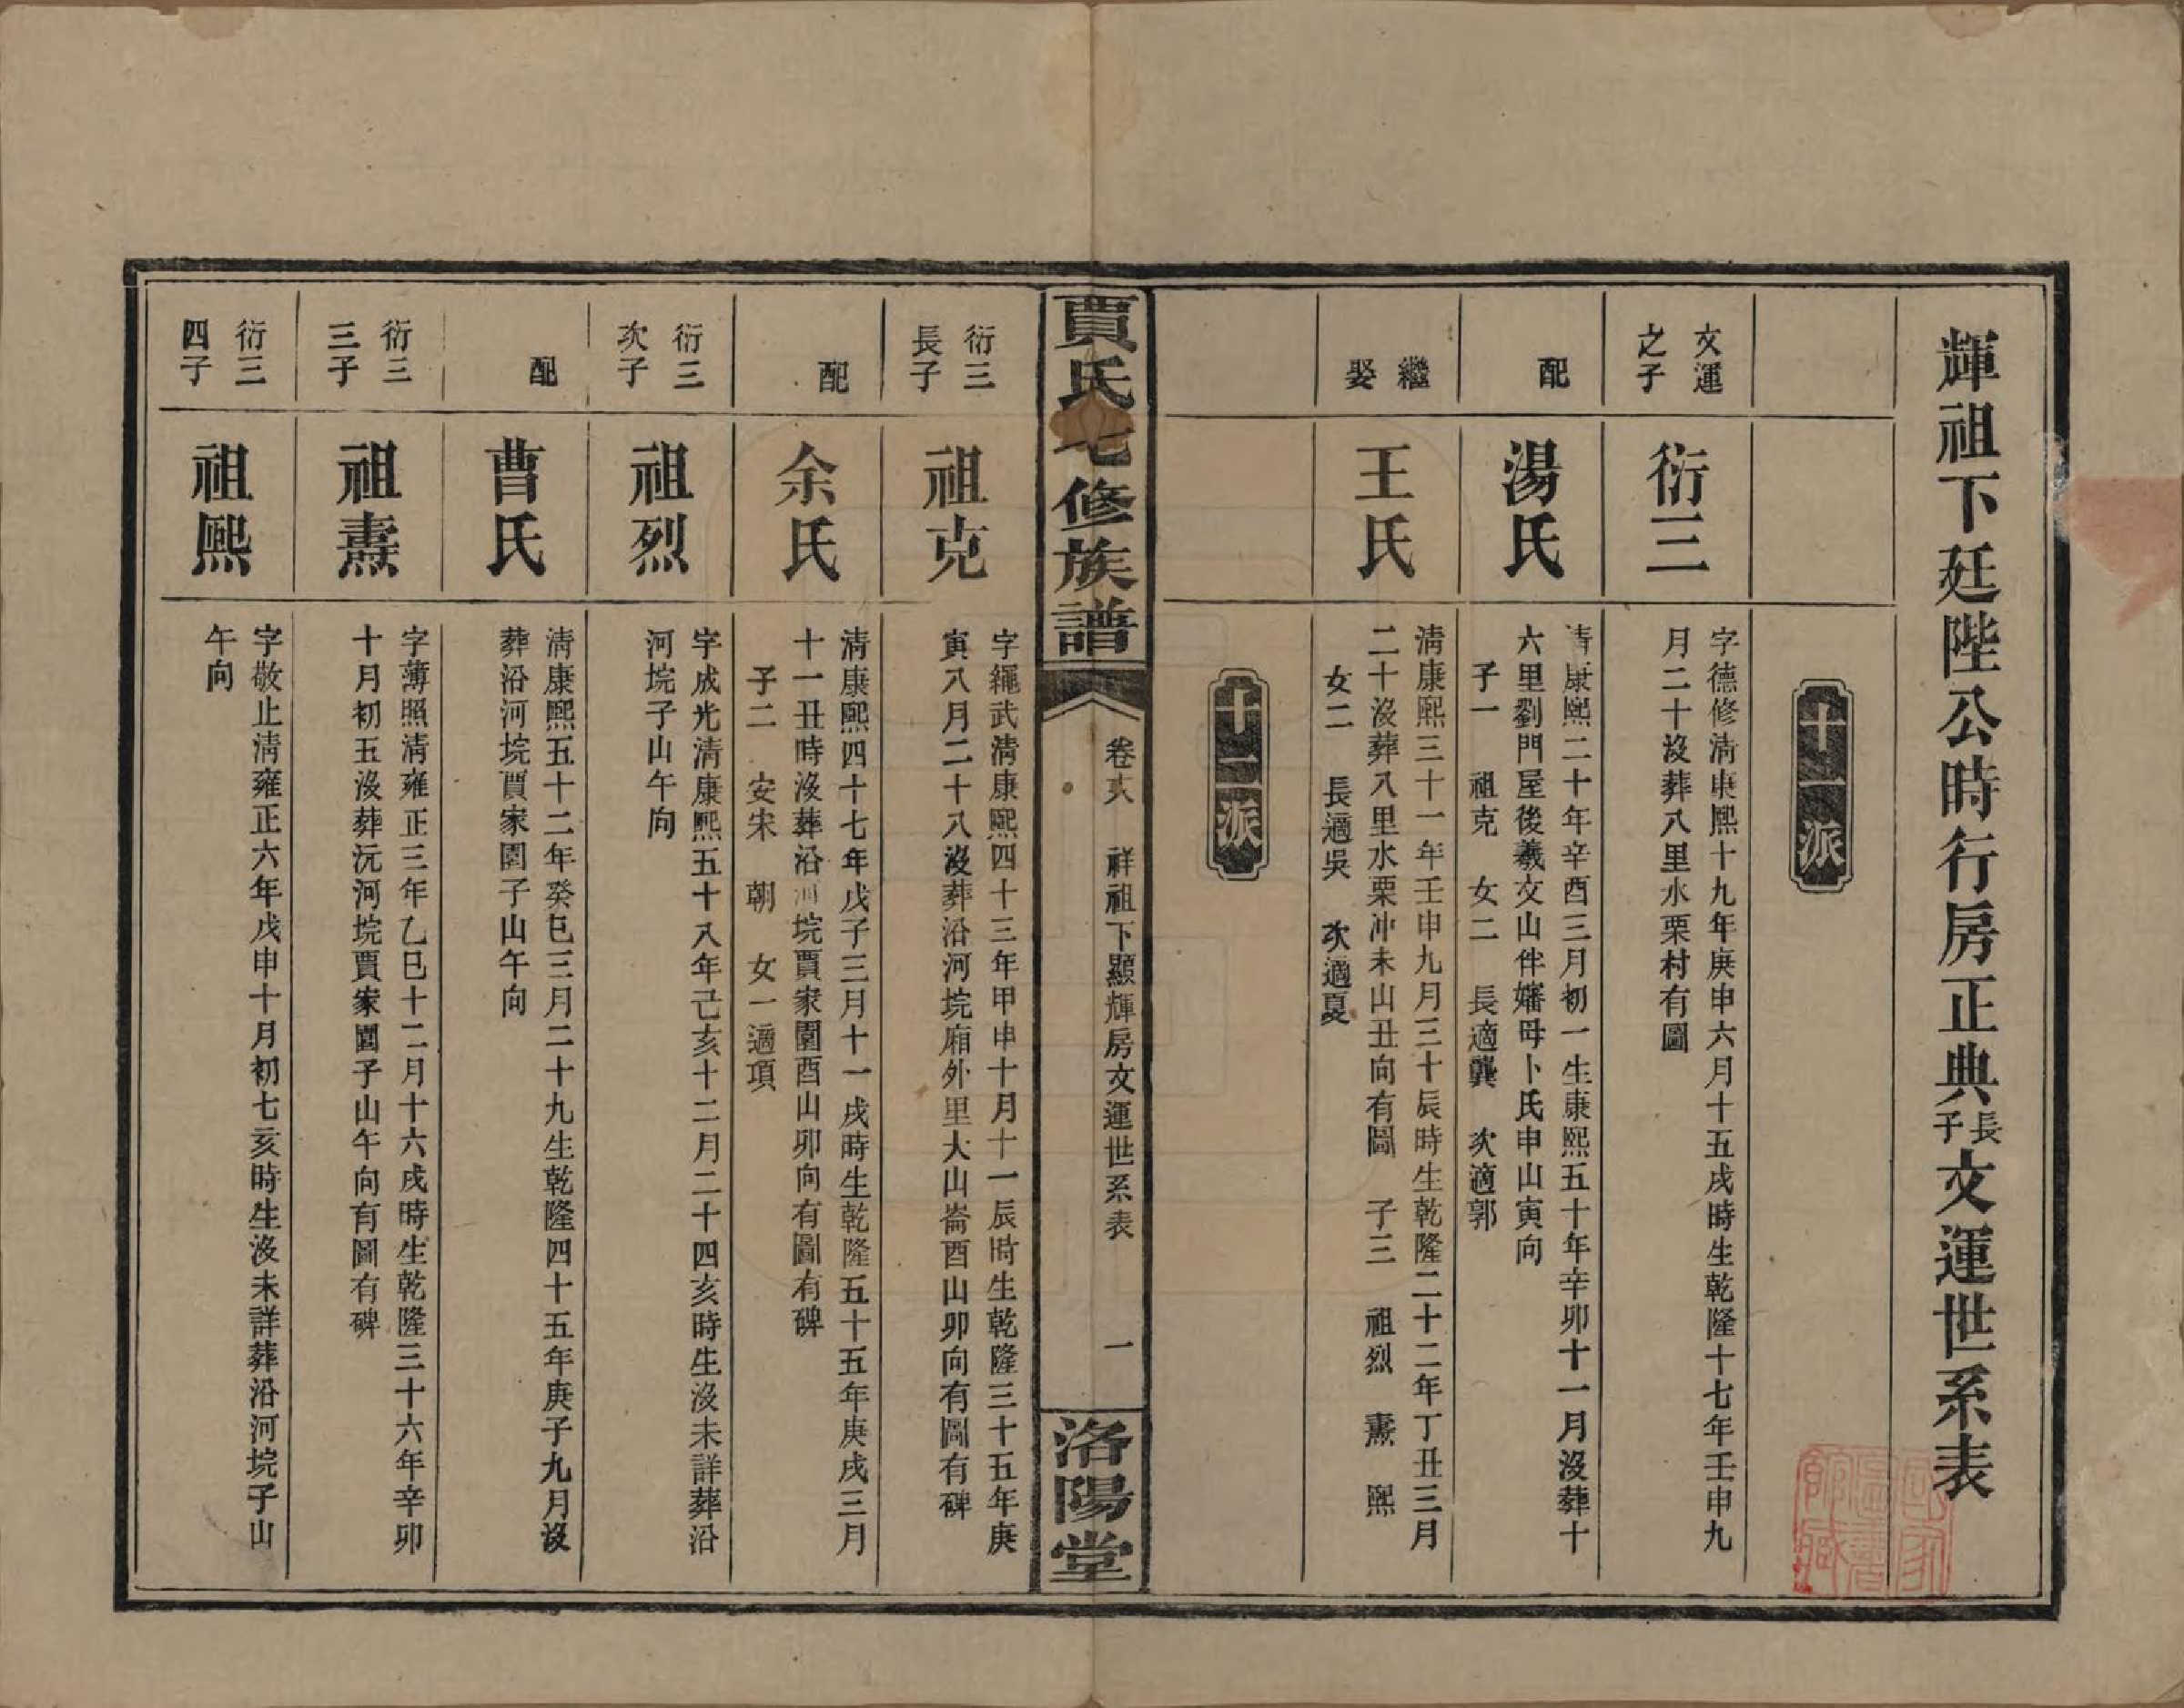 輝祖下廷陛公時行房正典長子文運世系表
十一派
文運
之子
衍三
字德修淸康熙十九年庚申六月十五戌時生乾隆十七年壬申九
月二十沒葬八里水栗村有圖
配
湯氏
淸康熙二十年辛酉三月初一生康熙五十年辛卯十一月沒葬十
六里劉門屋後羲文山伴嬸母卜氏申山寅向
子一 祖克 女二 長適龔 次適郭
繼
娶
王氏
淸康熙三十一年壬申九月三十辰時生乾隆二十二年丁丑三月
二十沒葬八里水栗冲未山丑向有圖 子三 祖烈 燾 熙
女二 長適吳 次適夏
十二派
賈氏七修族譜
卷 祥祖下顯輝房文運世系表 一
洛陽堂
衍三
長子
祖克
字繩武淸康熙四十三年甲申十月十一辰時生乾隆三十五年庚
寅八月二十八沒葬沿河垸廂外里大山崙酉山卯向有圖有碑
配
余氏
淸康熙四十七年戊子三月十一戌時生乾隆五十五年庚戌三月
十一丑時沒葬沿河垸賈家園酉山卯向有圖有碑
子二 安宋 朝 女一適項
衍三
次子
祖烈
字成光淸康熙五十八年己亥十二月二十四亥時生沒未詳葬沿
河垸子山午向
配
曹氏
淸康熙五十二年癸巳三月二十九生乾隆四十五年庚子九月沒
葬沿河垸賈家園子山午向
衍三
三子
祖燾
字薄照淸雍正三年乙巳十二月十六戌時生乾隆三十六年辛卯
十月初五沒葬沅河垸賈家園子山午向有圖有碑
衍三
四子
祖熙
字敬止淸雍正六年戊申十月初七亥時生沒未詳葬沿河垸子山
午向